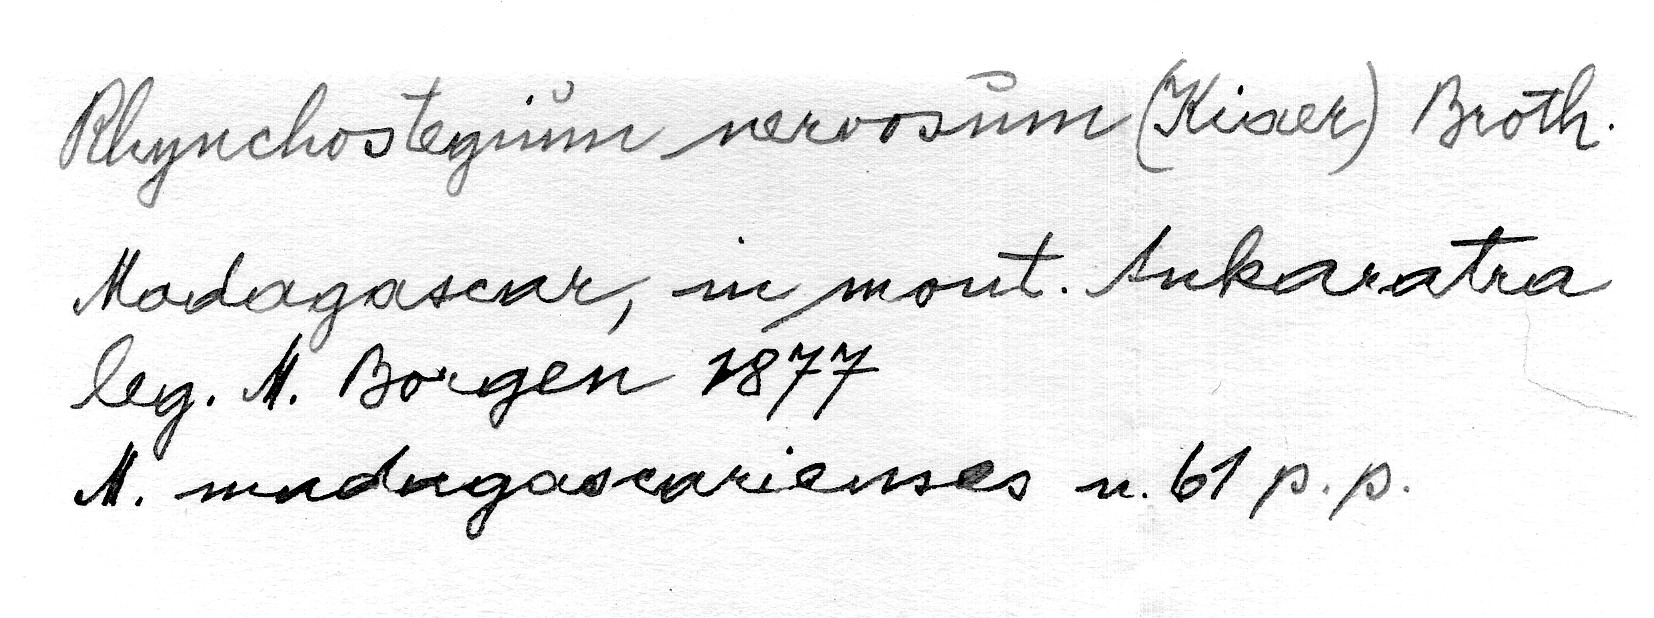 Rhynchostegium nervosum (Kiaer) Broth.
Madagascar, in mont. Ankaratra
leg. M. Borgen 1877
M. madagascarienses n. 61 p.p.